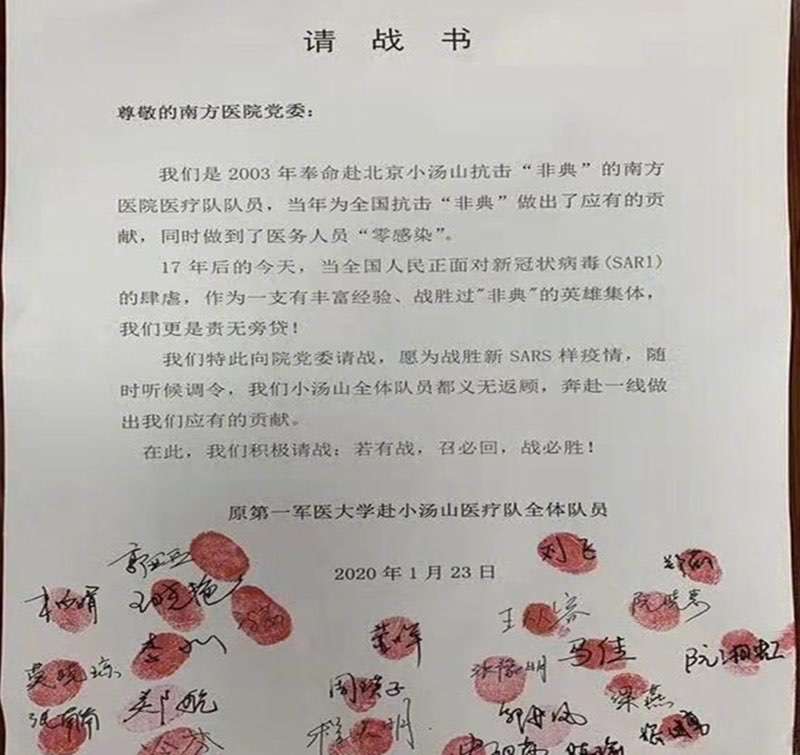 请战书
尊敬的南方医院党委：
我们是2003年奉命赴北京小汤山抗击“非典”的南方
医院医疗队队员，当年为全国抗击“非典”做出了应有的贡
献，同时做到了医务人员“零感染”。
17年后的今天，当全国人民正面对新冠状病毒(SARI)
的肆虐，作为一支有丰富经验、战胜过"非典"的英雄集体，
我们更是责无旁贷！
我们特此向院党委请战，愿为战胜新SARS样疫情，随
时听候调令，我们小汤山全体队员都义无返顾，奔赴一线做
出我们应有的贡献。
在此，我们积极请战：若有战，召必回，战必胜！
原第一军医大学赴小汤山医疗队全体队员
2020年1月23日
刘飞
马佳
阮湘虹
阮晓惠
梁燕